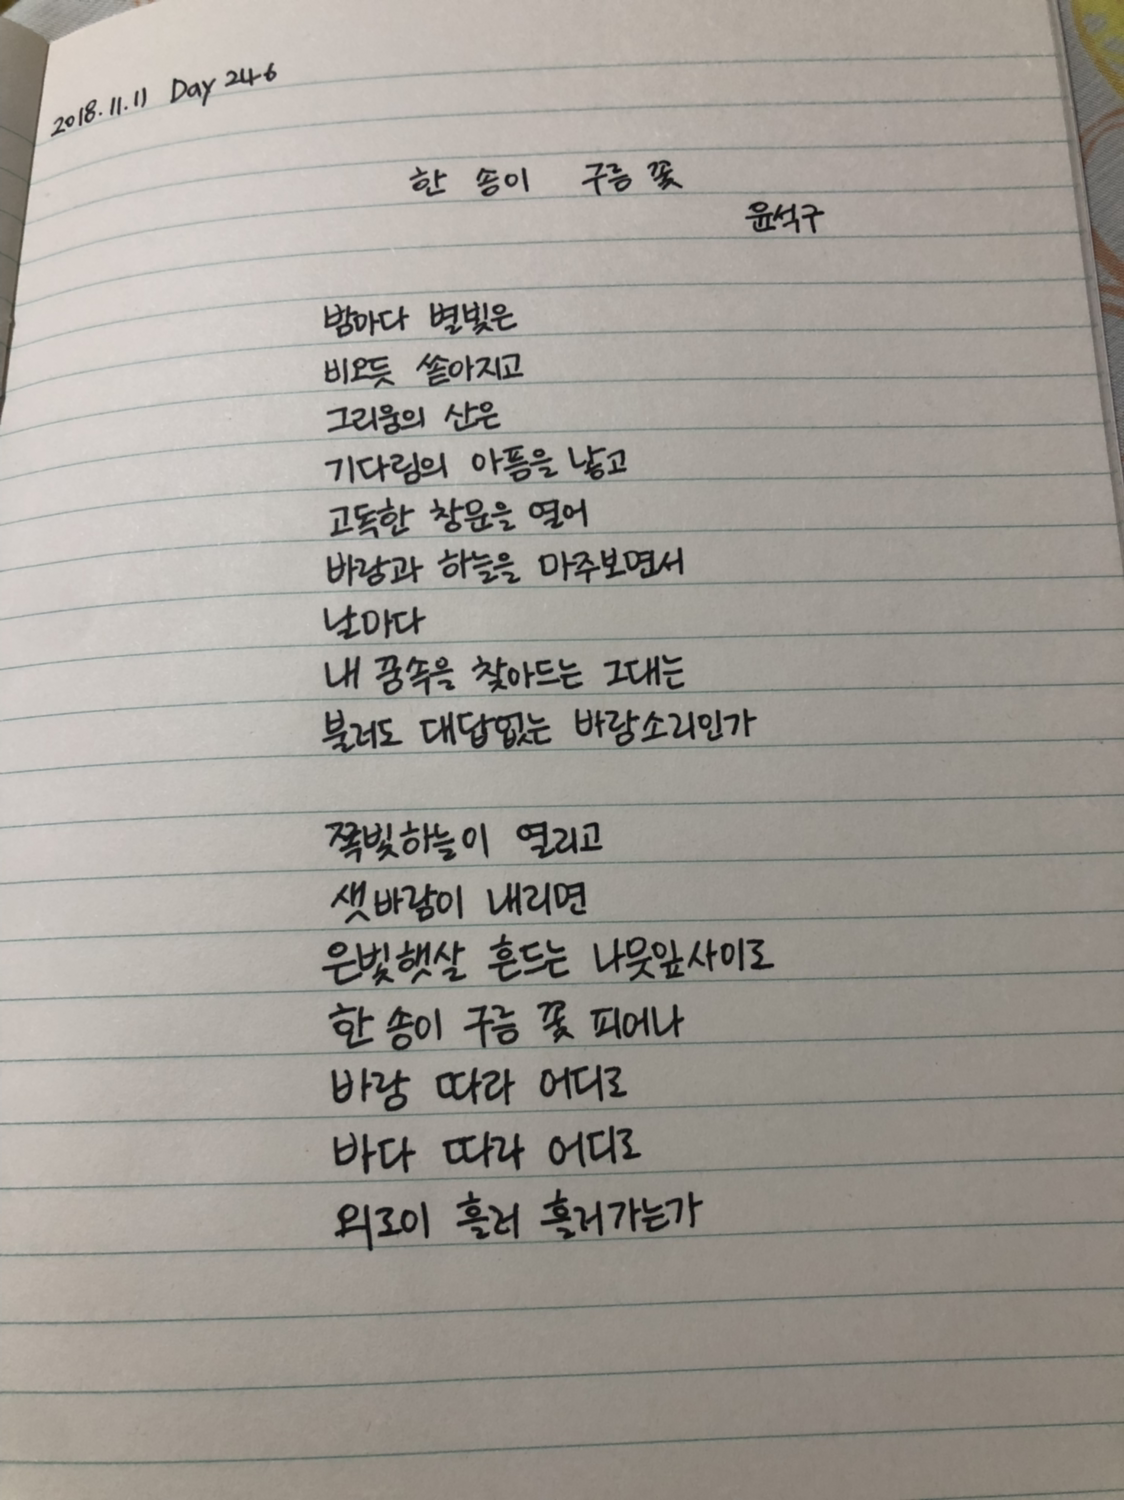 2018.11.11 Day 246
한 송이 구름 꽃
윤석구
밤마다 별빛은
비오듯 쏟아지고
그리움의 산은
기다림의 아픔을 낳고
고독한 창문을 열어
바람과 하늘을 마주보면서
날마다
내 꿈속을 찾아드는 그대는
불러도 대답없는 바람소리인가
쪽빛하늘이 열리고
샛바람이 내리면
은빛햇살 흔드는 나뭇잎사이로
한 송이 구름 꽃 피어나
바람 따라 어디로
바다 따라 어디로
외로이 흘러 흘러가는가